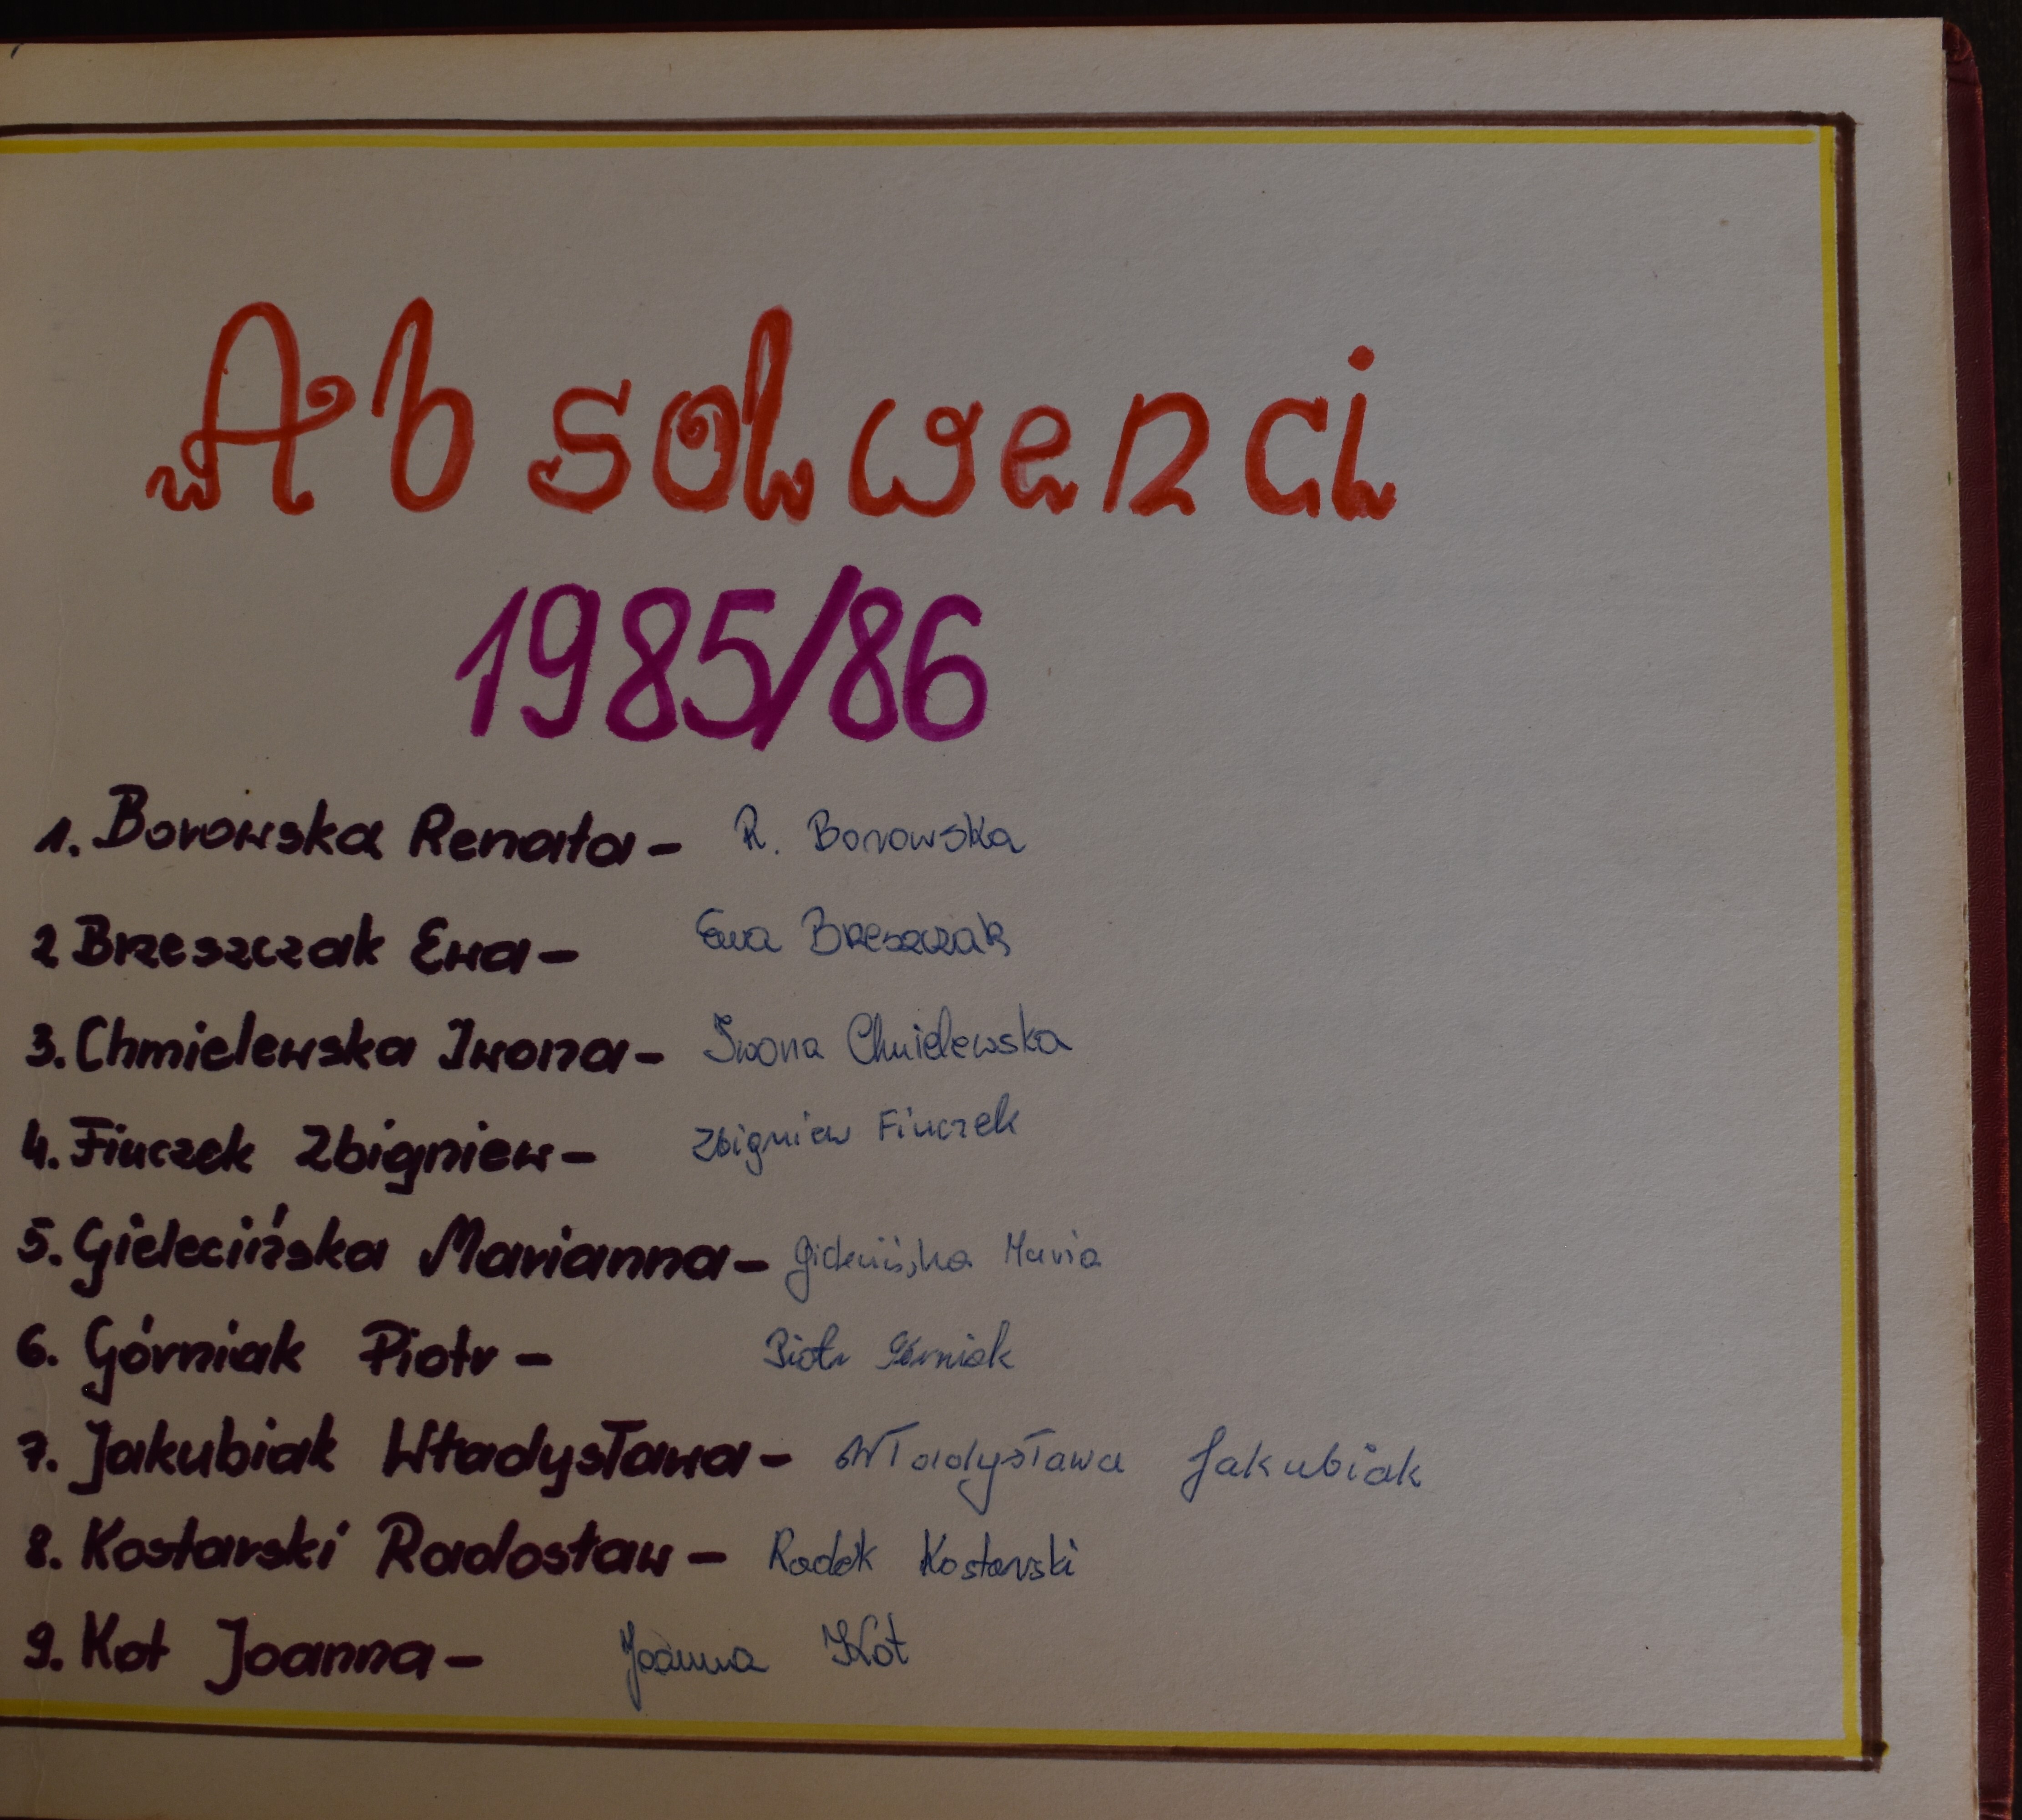 Absolwenci
1985/86
1. Borowska Renata - R. Borowska
2 Brzeszczak Ewa - Ewa Brzeszczak
3. Chmielewska Iwona - Iwona Chmielewska
4. Fiuczek Zbigniew - Zbigniew Fiuczek
5. Gielecińska Marianna - Gielecińska Maria
6. Górniak Piotr - Piotr Górniak
7. Jakubiak Władysława - Władysława Jakubiak
8. Kostarski Radosław - Radek Kostarski
9. Kot Joanna - Joanna Kot